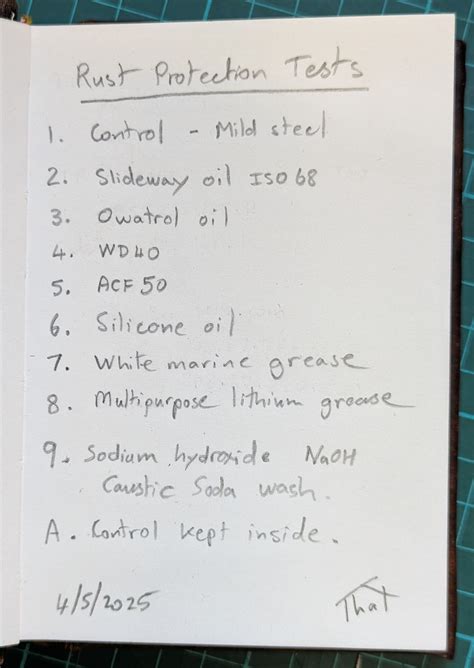 Rust Protection Tests
1. Control - Mild steel
2. Slideway oil ISO 68
3. Owatrol oil
4. WD40
5. ACF 50
6. Silicone oil
7. White marine grease
8. Multipurpose lithium grease
9. Sodium hydroxide NaOH
Caustic Soda wash.
A. Control kept inside.
4/5/2025 That